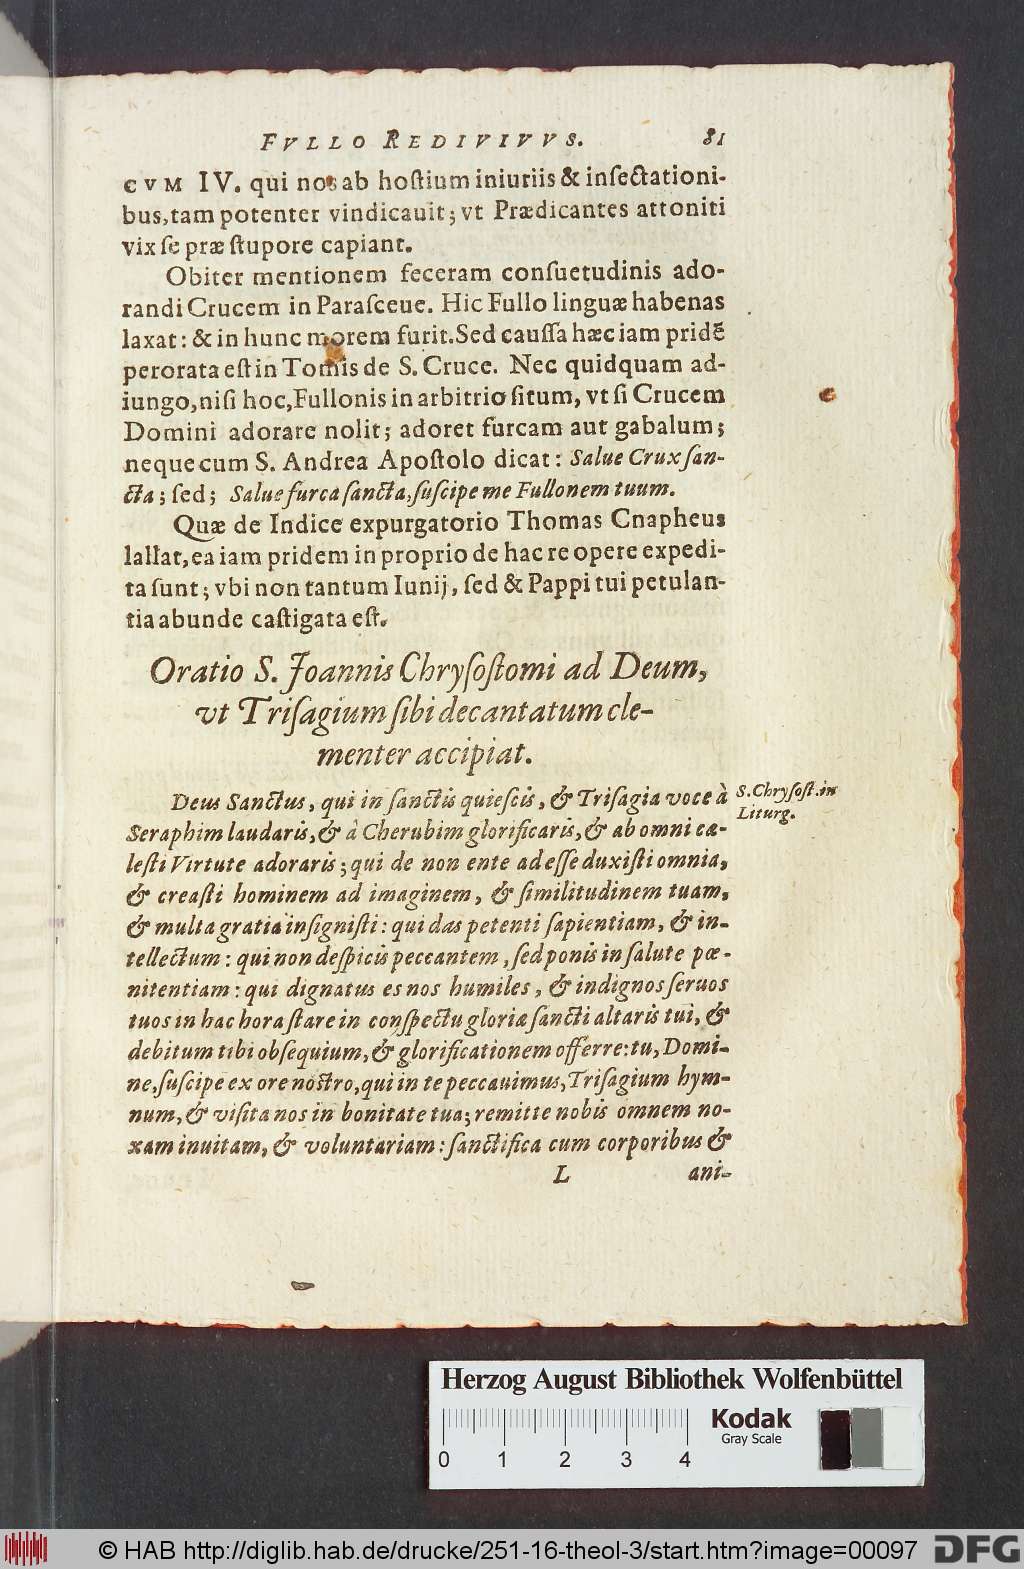 FVLLO REDIVIVVS. 81
CVM IV. qui nos ab hoſtium iniuriis & inſectationi-
bus, tam potenter vindicauit; vt Prædicantes attoniti
vix ſe præ ſtupore capiant.
Obiter mentionem feceram conſuetudinis ado-
randi Crucem in Paraſceue. Hic Fullo linguæ habenas
laxat: & in hunc morem furit. Sed cauſſa hæc iam pridẽ
perorata eſt in Tomis de S. Cruce. Nec quidquam ad-
iungo, niſi hoc, Fullonis in arbitrio ſitum, vt ſi Crucem
Domini adorare nolit; adoret furcam aut gabalum;
neque cum S. Andrea Apoſtolo dicat: Salue Crux ſan-
cta; ſed; Salue furca ſancta, ſuſcipe me Fullonem tuum.
Quæ de Indice expurgatorio Thomas Cnapheus
lallat, ea iam pridem in proprio de hac re opere expedi-
ta ſunt; vbi non tantum Iunij, ſed & Pappi tui petulan-
tia abunde caſtigata eſt.
Oratio S. Joannis Chryſoſtomi ad Deum,
vt Triſagium ſibi decantatum cle-
menter accipiat.
Deus Sanctus, qui in ſanctis quieſcis, & Triſagia voce à
S. Chryſoſt. in
Liturg.
Seraphim laudaris, & à Cherubim glorificaris, & ab omni cæ-
leſti Virtute adoraris; qui de non ente ad eſſe duxiſti omnia,
& creaſti hominem ad imaginem, & ſimilitudinem tuam,
& multa gratia inſigniſti: qui das petenti ſapientiam, & in-
tellectum: qui non deſpicis peccantem, ſed ponis in ſalute pœ-
nitentiam: qui dignatus es nos humiles, & indignos ſeruos
tuos in hac hora ſtare in conſpectu gloriæ ſancti altaris tui, &
debitum tibi obſequium, & glorificationem offerre: tu, Domi-
ne, ſuſcipe ex ore noſtro, qui in te peccauimus, Triſagium hym-
num, & viſita nos in bonitate tua; remitte nobis omnem no-
xam inuitam, & voluntariam: ſanctifica cum corporibus &
L ani-
Herzog August Bibliothek Wolfenbüttel
Kodak
Gray Scale
0 1 2 3 4
© HAB http://diglib.hab.de/drucke/251-16-theol-3/start.htm?image=00097
DFG